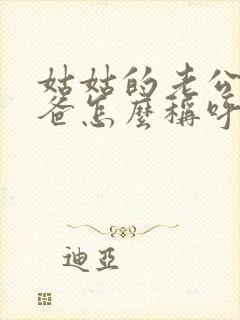 姑姑的老公
爸怎麼稱呼
迪亞